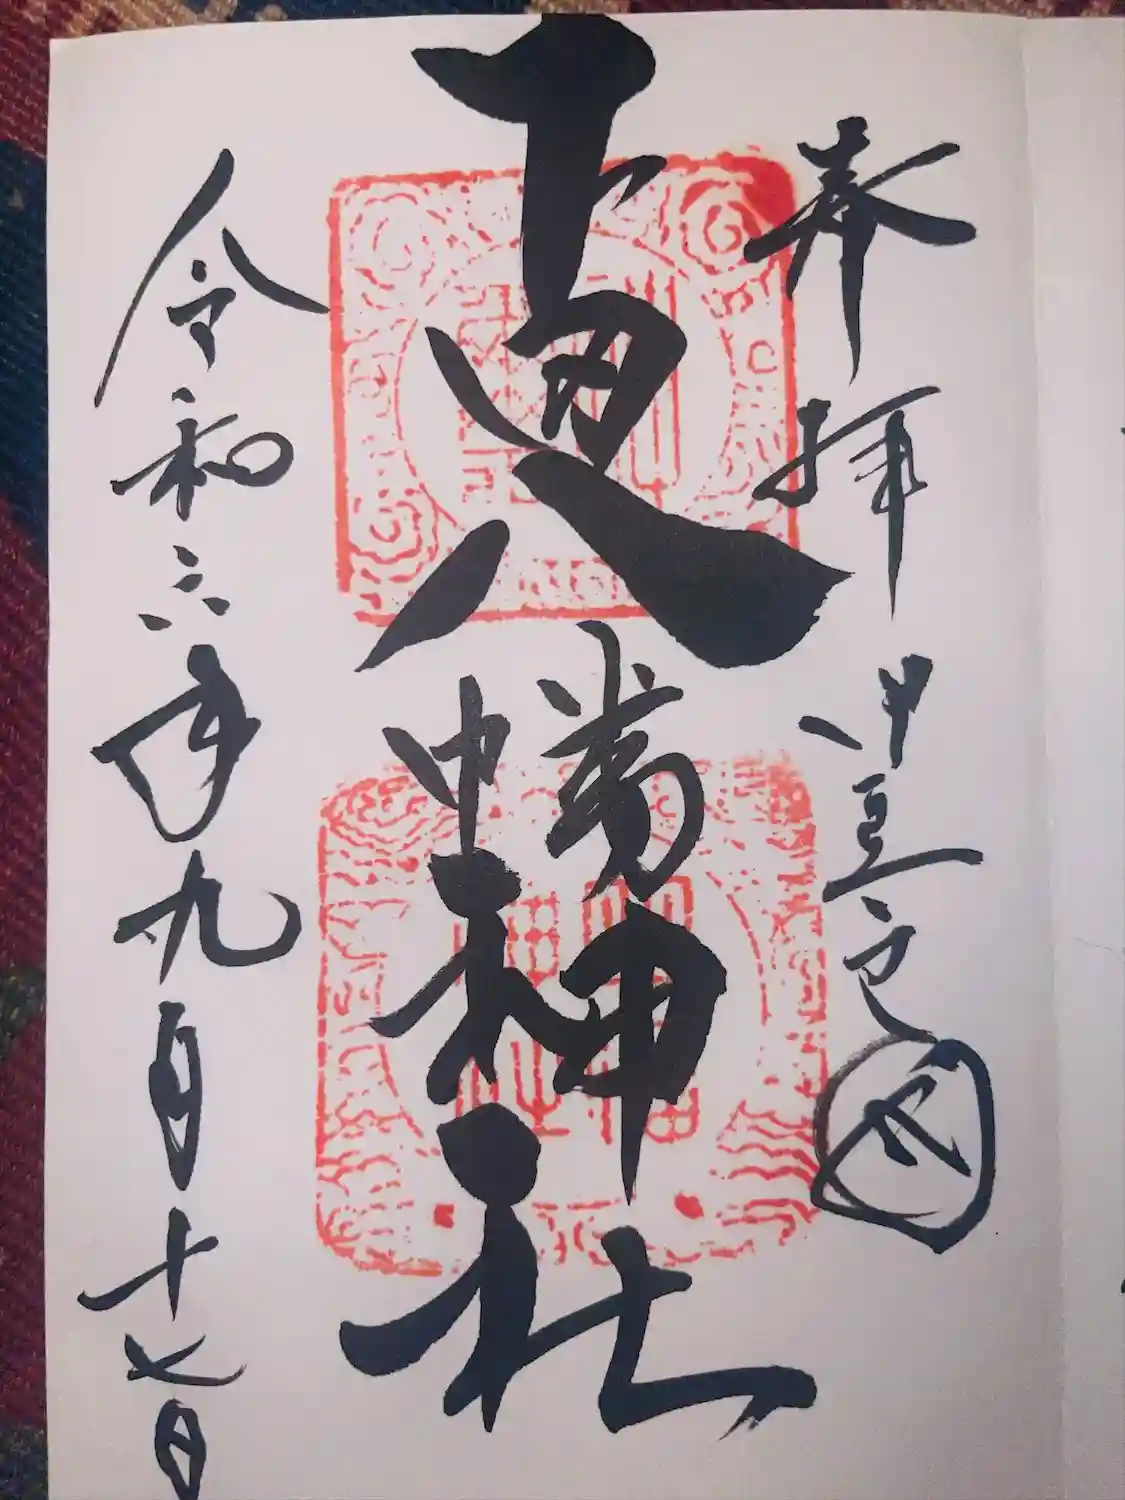 奉拝 伊豆之国
下田八幡神社
令和六年九月十七日